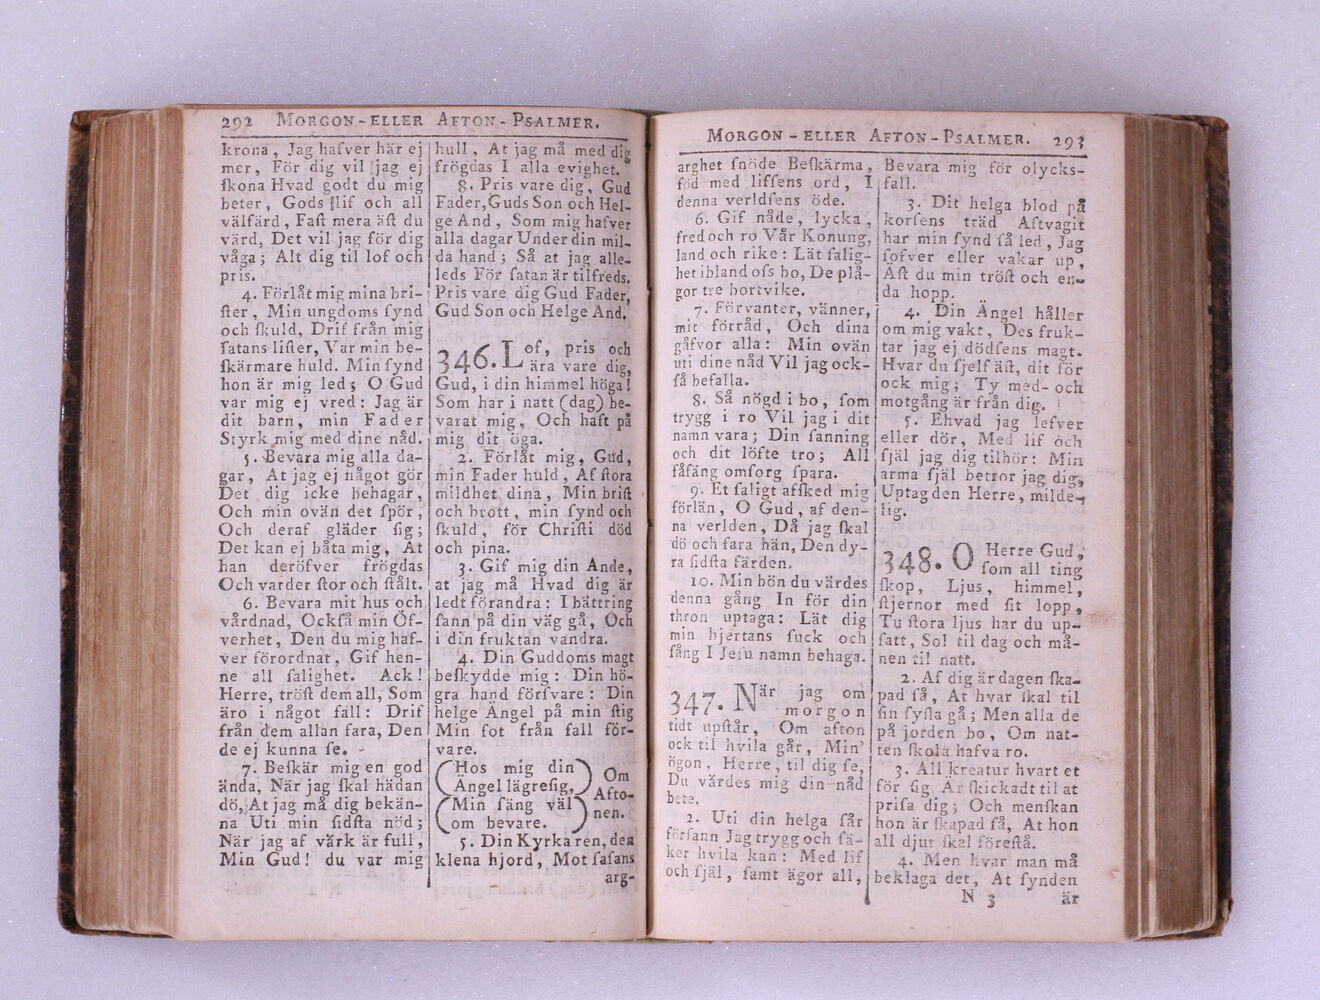 292 MORGON-ELLER AFTON-PSALMER.
krona, Jag hafver här ej
mer, För dig vil jag ej
ſkona Hvad godt du mig
beter, Gods lif och all
välfärd, Faſt mera äſt du
värd, Det vil jag för dig
våga; Alt dig til lof och
pris.
4. Förlåt mig mina bri-
ſter, Min ungdoms ſynd
och ſkuld, Drif från mig
ſatans liſter, Var min be-
ſkärmare huld. Min ſynd
hon är mig led; O Gud
var mig ej vred: Jag är
dit barn, min Fader
Styrk mig med dine nåd.
5. Bevara mig alla da-
gar, At jag ej något gör
Det dig icke behagar,
Och min ovän det ſpör,
Och deraf gläder ſig;
Det kan ej båta mig, At
han deröfver frögdas
Och varder ſtor och ſtålt.
6. Bevara mit hus och
vårdnad, Ockſå min Öf-
verhet, Den du mig haf-
ver förordnat, Gif hen-
ne all ſalighet. Ack!
Herre, tröſt dem all, Som
äro i något fall: Drif
från dem allan fara, Den
de ej kunna ſe.
7. Beſkär mig en god
ända, När jag ſkal hädan
dö, At jag må dig bekän-
na Uti min ſidſta nöd;
När jag af värk är full,
Min Gud! du var mig
hull, At jag må med dig
frögdas I alla evighet.
8. Pris vare dig, Gud
Fader, Guds Son och Hel-
ge And, Som mig hafver
alla dagar Under din mil-
da hand; Så at jag alle-
leds För ſatan är tilfreds.
Pris vare dig Gud Fader,
Gud Son och Helge And.
346. Lof, pris och
ära vare dig,
Gud, i din himmel höga!
Som har i natt (dag) be-
varat mig, Och haft på
mig dit öga.
2. Förlåt mig, Gud,
min Fader huld, Af ſtora
mildhet dina, Min briſt
och brott, min ſynd och
ſkuld, för Chriſti död
och pina.
3. Gif mig din Ande,
at jag må Hvad dig är
ledt förandra: I bättring
ſann på din väg gå, Och
i din fruktan vandra.
4. Din Guddoms magt
beſkydde mig: Din hö-
gra hand förſvare: Din
helge Ängel på min ſtig
Min fot från fall för-
vare.
(Hos mig din)
(Ängel lägre ſig,) Om
(Min ſäng väl) Afto-
(om bevare.) nen.
5. Din Kyrka ren, den
klena hjord, Mot ſaſans
arg-
MORGON-ELLER AFTON-PSALMER. 293
arghet ſnöde Beſkärma,
föd med liffens ord, I
denna verldſens öde.
6. Gif nåde, lycka,
fred och ro Vår Konung,
land och rike: Lät ſalig-
het ibland oſs bo, De plå-
gor tre bortvike.
7. Förvanter, vänner,
mit förråd, Och dina
gåfvor alla: Min ovän
uti dine nåd Vil jag ock-
ſå befalla.
8. Så nögd i bo, ſom
trygg i ro Vil jag i dit
namn vara; Din ſanning
och dit löfte tro; All
fåfäng omſorg ſpara.
9. Et ſaligt afſked mig
förlän, O Gud, af den-
na verlden, Då jag ſkal
dö och fara hän, Den dy-
ra ſidſta färden.
10. Min bön du värdes
denna gång In för din
thron uptaga: Lät dig
min hjertans ſuck och
ſång I Jeſu namn behaga.
347. När jag om
morgon
tidt upſtår, Om afton
ock til hvila går, Min'
ögon, Herre, til dig ſe,
Du värdes mig din nåd
bete.
2. Uti din helga ſår
förſann Jag trygg och ſä-
ker hvila kan: Med lif
och ſjäl, ſamt ägor all,
Bevara mig för olycks-
fall.
3. Dit helga blod på
korſens träd Aftvagit
har min ſynd ſå led, Jag
ſofver eller vakar up,
Äſt du min tröſt och en-
da hopp.
4. Din Ängel håller
om mig vakt, Des fruk-
tar jag ej dödſens magt.
Hvar du ſjelf äſt, dit för
ock mig; Ty med- och
motgång är från dig.
5. Ehvad jag lefver
eller dör, Med lif och
ſjäl jag dig tilhör: Min
arma ſjäl betror jag dig,
Uptag den Herre, milde-
lig.
348. O Herre Gud,
ſom all ting
ſkop, Ljus, himmel,
ſtjernor med ſit lopp,
Tu ſtora ljus har du up-
ſatt, Sol til dag och må-
nen til natt.
2. Af dig är dagen ſka-
pad ſå, At hvar ſkal til
ſin ſyſla gå; Men alla de
på jorden bo, Om nat-
ten ſkola hafva ro.
3. All kreatur hvart et
för ſig Är ſkickadt til at
priſa dig; Och menſkan
hon är ſkapad ſå, At hon
all djur ſkal föreſtå.
4. Men hvar man må
beklaga det, At ſynden
N 3 är